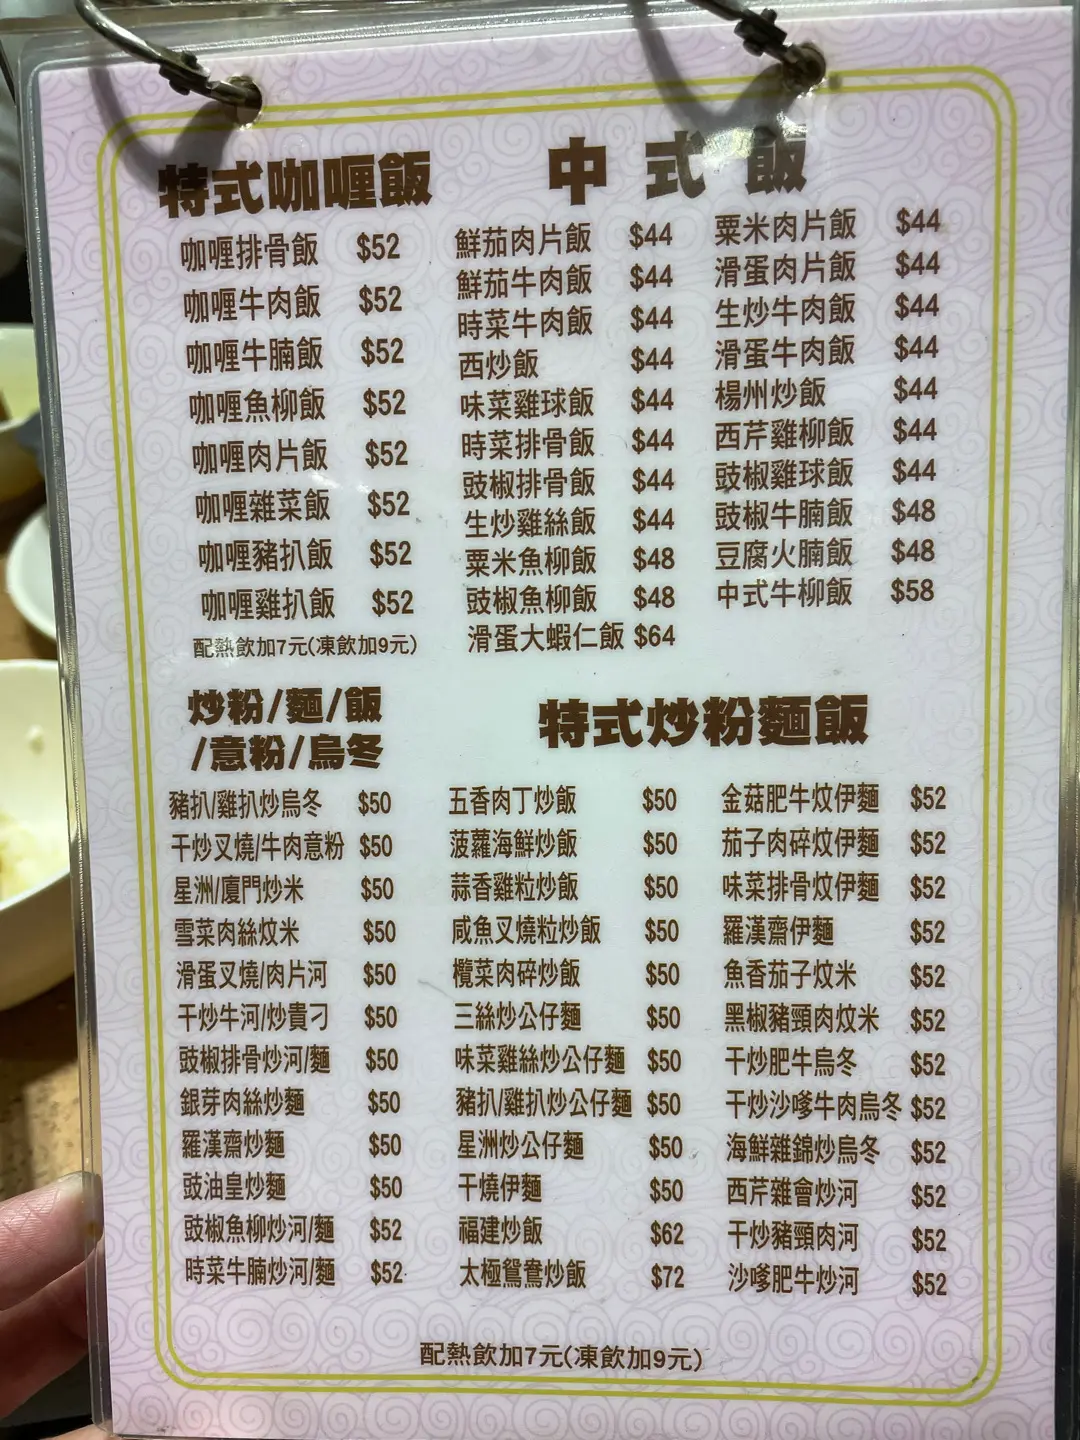 特式咖喱飯
咖喱排骨飯 $52
咖喱牛肉飯 $52
咖喱牛腩飯 $52
咖喱魚柳飯 $52
咖喱肉片飯 $52
咖喱雜菜飯 $52
咖喱豬扒飯 $52
咖喱雞扒飯 $52
配熱飲加7元(凍飲加9元)
中式飯
鮮茄肉片飯 $44
鮮茄牛肉飯 $44
時菜牛肉飯 $44
西炒飯 $44
味菜雞球飯 $44
時菜排骨飯 $44
豉椒排骨飯 $44
生炒雞絲飯 $44
粟米魚柳飯 $48
豉椒魚柳飯 $48
滑蛋大蝦仁飯 $64
粟米肉片飯 $44
滑蛋肉片飯 $44
生炒牛肉飯 $44
滑蛋牛肉飯 $44
楊州炒飯 $44
西芹雞柳飯 $44
豉椒雞球飯 $44
豉椒牛腩飯 $48
豆腐火腩飯 $48
中式牛柳飯 $58
炒粉/麵/飯
/意粉/烏冬
豬扒/雞扒炒烏冬 $50
干炒叉燒/牛肉意粉 $50
星洲/廈門炒米 $50
雪菜肉絲炆米 $50
滑蛋叉燒/肉片河 $50
干炒牛河/炒貴刁 $50
豉椒排骨炒河/麵 $50
銀芽肉絲炒麵 $50
羅漢齋炒麵 $50
豉油皇炒麵 $50
豉椒魚柳炒河/麵 $52
時菜牛腩炒河/麵 $52
特式炒粉麵飯
五香肉丁炒飯 $50
菠蘿海鮮炒飯 $50
蒜香雞粒炒飯 $50
咸魚叉燒粒炒飯 $50
欖菜肉碎炒飯 $50
三絲炒公仔麵 $50
味菜雞絲炒公仔麵 $50
豬扒/雞扒炒公仔麵 $50
星洲炒公仔麵 $50
干燒伊麵 $50
福建炒飯 $62
太極鴛鴦炒飯 $72
金菇肥牛炆伊麵 $52
茄子肉碎炆伊麵 $52
味菜排骨炆伊麵 $52
羅漢齋伊麵 $52
魚香茄子炆米 $52
黑椒豬頸肉炆米 $52
干炒肥牛烏冬 $52
干炒沙嗲牛肉烏冬 $52
海鮮雜錦炒烏冬 $52
西芹雜會炒河 $52
干炒豬頸肉河 $52
沙嗲肥牛炒河 $52
配熱飲加7元(凍飲加9元)